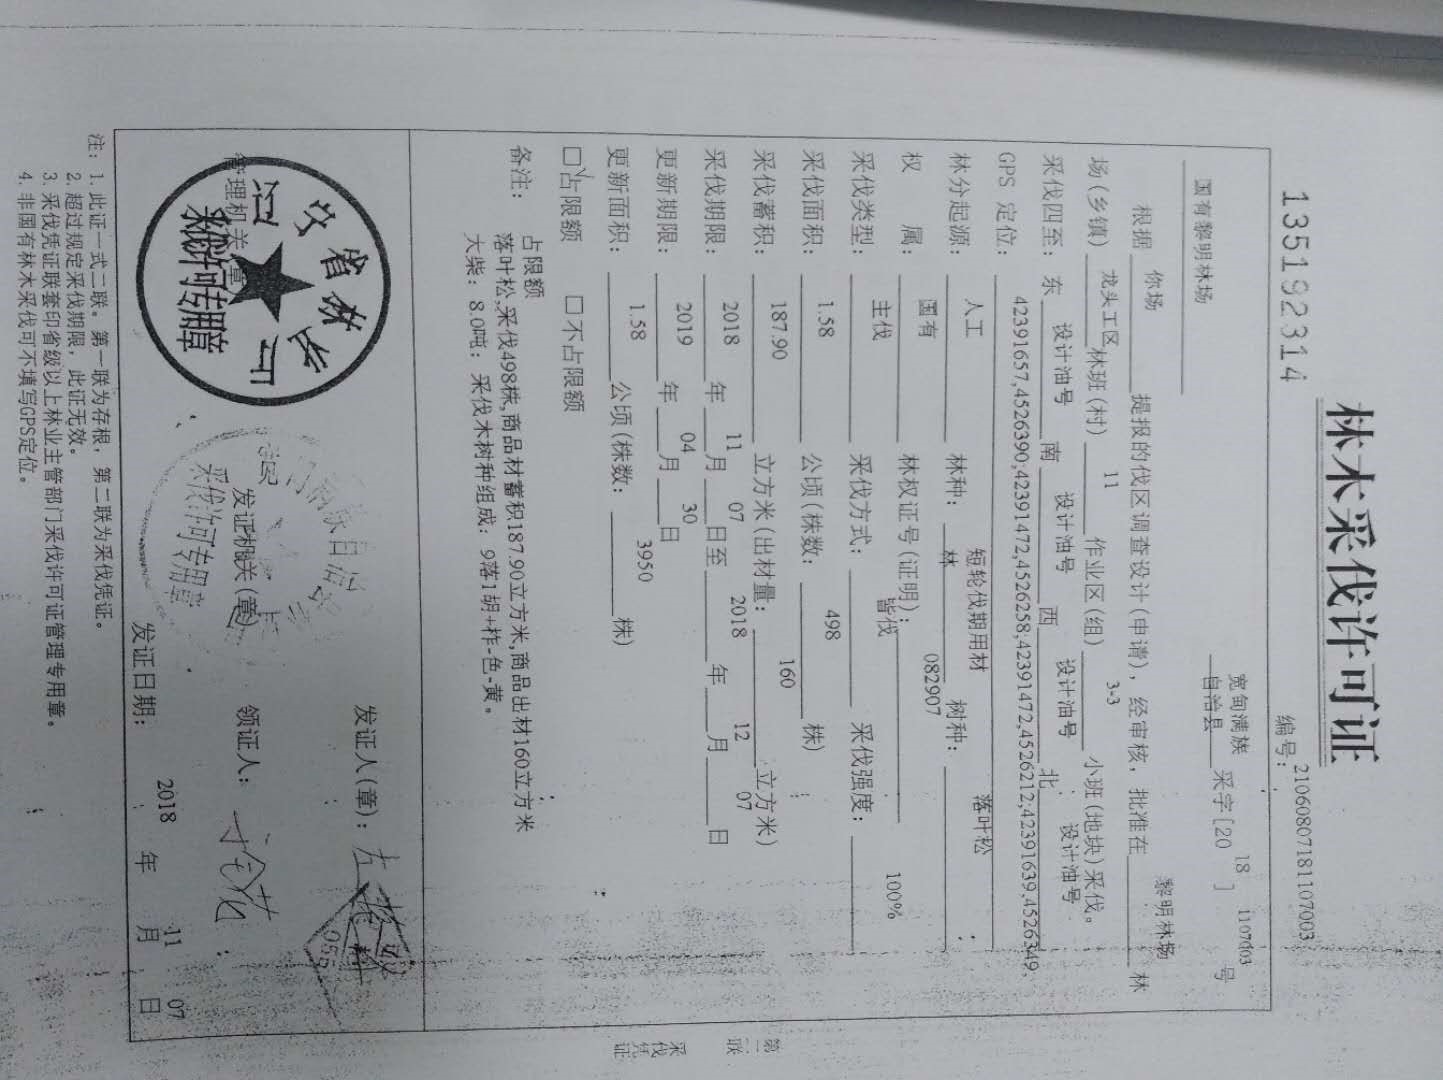 林木采伐许可证
135192314
编号：2106080718110700 3
宽甸满族自治县 采字[20 18 ] 1107003 号
国有黎明林场
根据 你场 提报的伐区调查设计(申请)，经审核，批准在 黎明林场 林
场(乡镇) 龙头工区 林班(村) 11 作业区(组) 3-3 小班(地块)采伐。
采伐四至：东 设计油号 南 设计油号 西 设计油号 北 设计油号
GPS 定位：42391657,4526390;42391472,4526258;42391472,4526212;42391639,4526349,
林分起源： 人工 林种： 短轮伐期用材林 树种： 落叶松
权 属： 国有 林权证号(证明)： 082907
采伐类型： 主伐 采伐方式： 皆伐 采伐强度： 100%
采伐面积： 1.58 公顷(株数： 498 株)
采伐蓄积： 187.90 立方米(出材量： 160 立方米)
采伐期限： 2018 年 11 月 07 日至 2018 年 12 月 07 日
更新期限： 2019 年 04 月 30 日
更新面积： 1.58 公顷(株数： 3950 株)
☑占限额 □不占限额
备注： 占限额
落叶松,采伐498株,商品材蓄积187.90立方米,商品出材160立方米
大柴：8.0吨；采伐木树种组成：9落1胡+柞-色-黄。
辽宁省林业厅
采伐许可专用章
管理机关(章)
发证机关(章)
采伐许可专用章
发证人(章)：
领证人：
发证日期： 2018 年 11 月 07 日
注：1. 此证一式二联。第一联为存根，第二联为采伐凭证。
2. 超过规定采伐期限，此证无效。
3. 采伐凭证联套印省级以上林业主管部门采伐许可证管理专用章。
4. 非国有林木采伐可不填写GPS定位。
第二联 采伐凭证